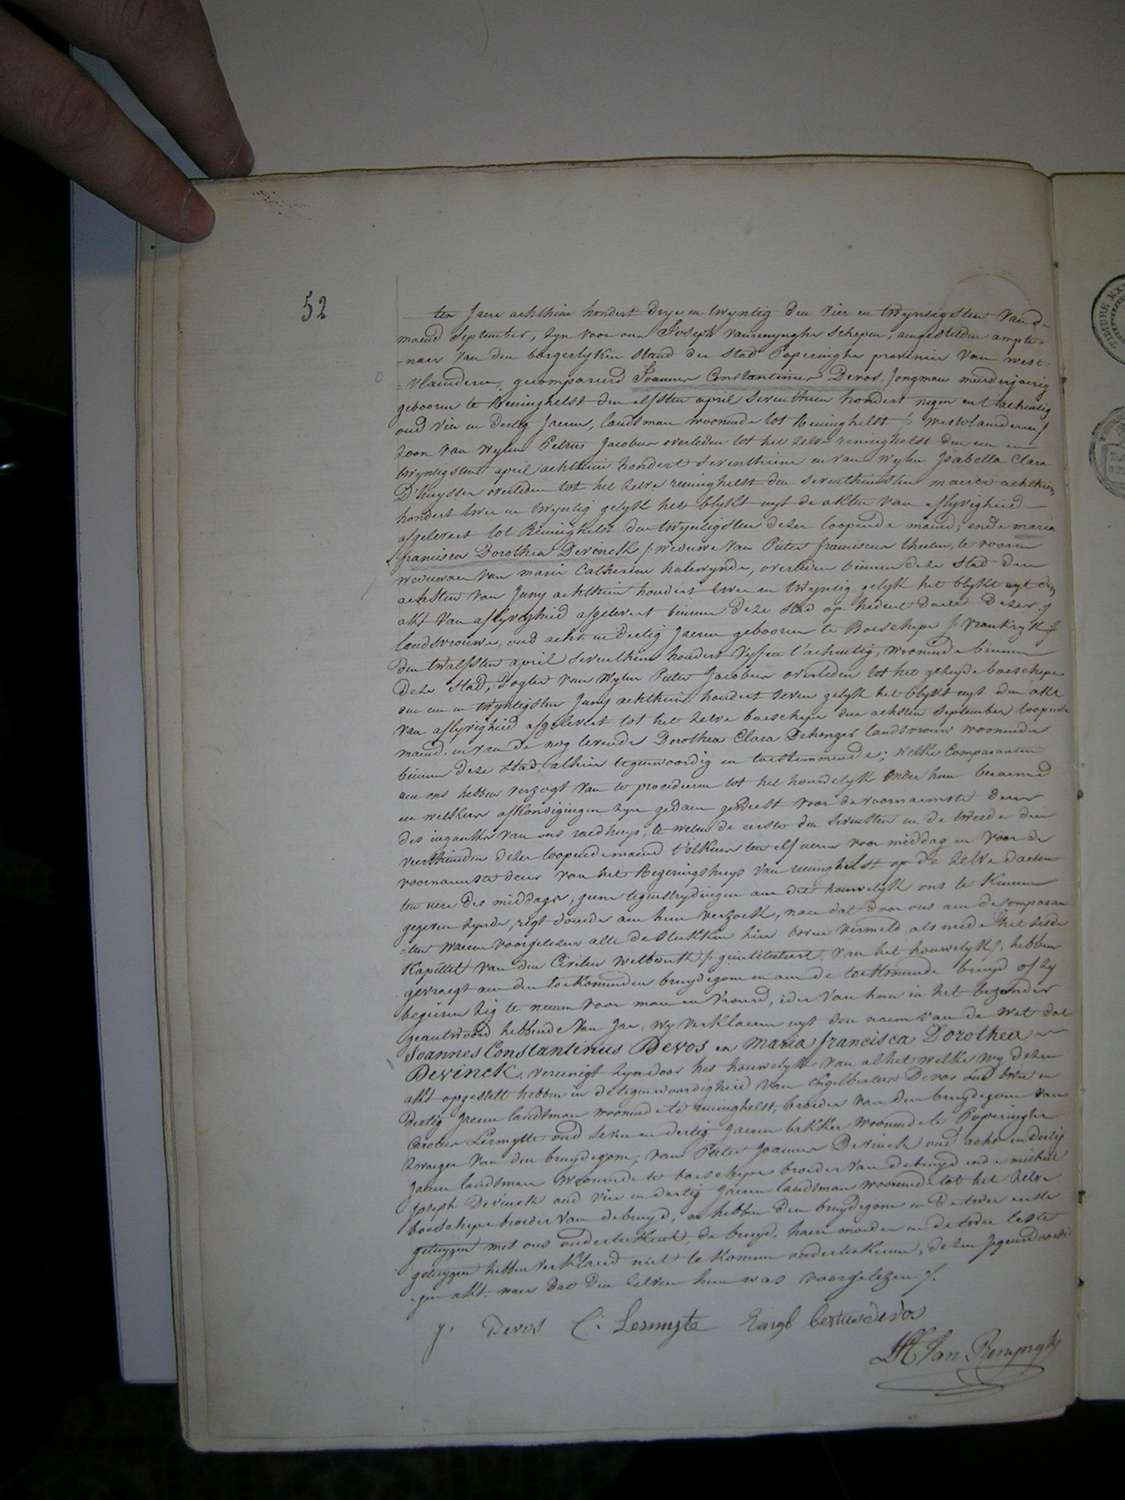 52
ten Jaere achthien hondert drye en twyntig den vier en twyntigsten van d-
maend September, zyn voor ons Joseph Vanrenynghe schepen, aengestelden ampte-
-naer van den borgerlyken stand der stad Poperinghe provincie van west-
-vlaenderen, gecompareerd Joannes Constantinus Devos, jongman meerderjarig
gebooren te Reninghelst den elfsten april seventhien hondert negen en t'achentig
oud vier en dertig jaeren, landsman woonende tot Reninghelst /: westvlaenderen /
zoon van wylen Petrus Jacobus overleden tot het zelve reninghelst den een en
twyntigsten april achthien hondert seventhiene en van wylen Isabella Clara
D'huysser overleden tot het zelve reninghelst den seventhiensten maerte achthien
hondert twee en twyntig gelyk het blykt uyt de akten van aflyvigheid
afgelevert tot Reninghelst den twyntigsten dezer loopende maend; ende maria
francisca Dorothea Devinck /: weduwe van Pieter franciscus theeten, te vooren
weduwaer van marie Catherine halewynde, overleden binnen deze stad den
achsten van Juny achthien hondert twee en twyntig gelyk het blykt uyt den
akt van aflyvigheid afgelevert binnen deze stad op hedent daete dezer :/
landsvrouwe, oud acht en dertig jaeren gebooren te Boeschepe /: vrankryk :/
den twalfsten april seventhien hondert vyf en t'achentig, woonende binnen
deze stad, dogter van wylen Pieter Jacobus overleden tot het gezeyde boeschepe
den een en twyntigsten Juny achthien hondert seven gelyk het blykt uyt den akt
van aflyvigheid afgelevert tot het zelve boeschepe den achsten september loopende
maend, en van de nog levende Dorothea Clara Dehonger landsvrouw woonende
binnen deze stad, alhier tegenwoordig en toestemmende; welke Comparanten
aen ons hebben verzogt van te procederen tot het houwelyk onder hun beraemd
en welkers afkondigingen zyn gedaen geweest voor de voornaemste deure
des ingankx van ons raedhuys, te weten de eerste den sevensten en de tweede den
veerthienden dezer loopende maend t'elkens ten elf uren voor middag en voor de
voornaemste deur van het Regeringshuys van reninghelst op de zelve daeten
ten ure des middags, geene tegenstrydingen aen dit houwelyk ons te kennen
gegeven zynde, regt doende aen hun verzoek, naer dat door ons aen de comparan
-ten waeren voorgelesen alle de stukken hier boven vermeld als mede het zesde
Kapittel van den Civilen wetboek /: geintituleert van het houwelyk :/, hebben
gevraegt aen den toekomenden bruydegom en aen de toekomende bruyd of zy
begeeren zig te neemen voor man en vrouw, ider van hun in het bezonder
geantwoord hebbende van Jae, wy verklaeren uyt den naem van de wet dat
Joannes Constantinus Devos en maria francisca Dorothea
Devinck, vereenigt zyn door het houwelyk van al het welke wy dezen
akt opgestelt hebben in de tegenwoordigheid van Engelbertus Devos oud twee en
dertig jaeren landsman woonende te reninghelst, broeder van den bruydegom van
Carolus Lermytte oud seven en dertig jaeren bakker woonende te Poperinghe
zwager van den bruydegom, van Pieter Joannes Devinck oud acht en dertig
jaeren landsman woonende te boeschepe broeder van de bruyd ende michiel
Joseph Devinck oud vier en dertig jaeren landsman woonende tot het zelve
boeschepe broeder van de bruyd, en hebben den bruydegom en de twee eerste
getuygen met ons onderteekent, de bruyd, haere moeder en de twee leste
getuygen hebben verklaerd niet te konnen onderteekenen, dezen jegenwoordi
-gen akt naer dat den zelven hun was voorgelezen /.
J. Devos C. Lermyte Engelbertus devos
JH Van Renynghe